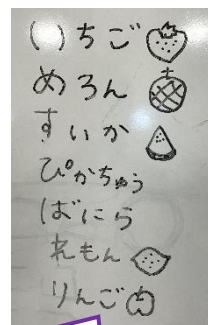 いちご
めろん
すいか
ぴかちゅう
ばにら
れもん
りんご